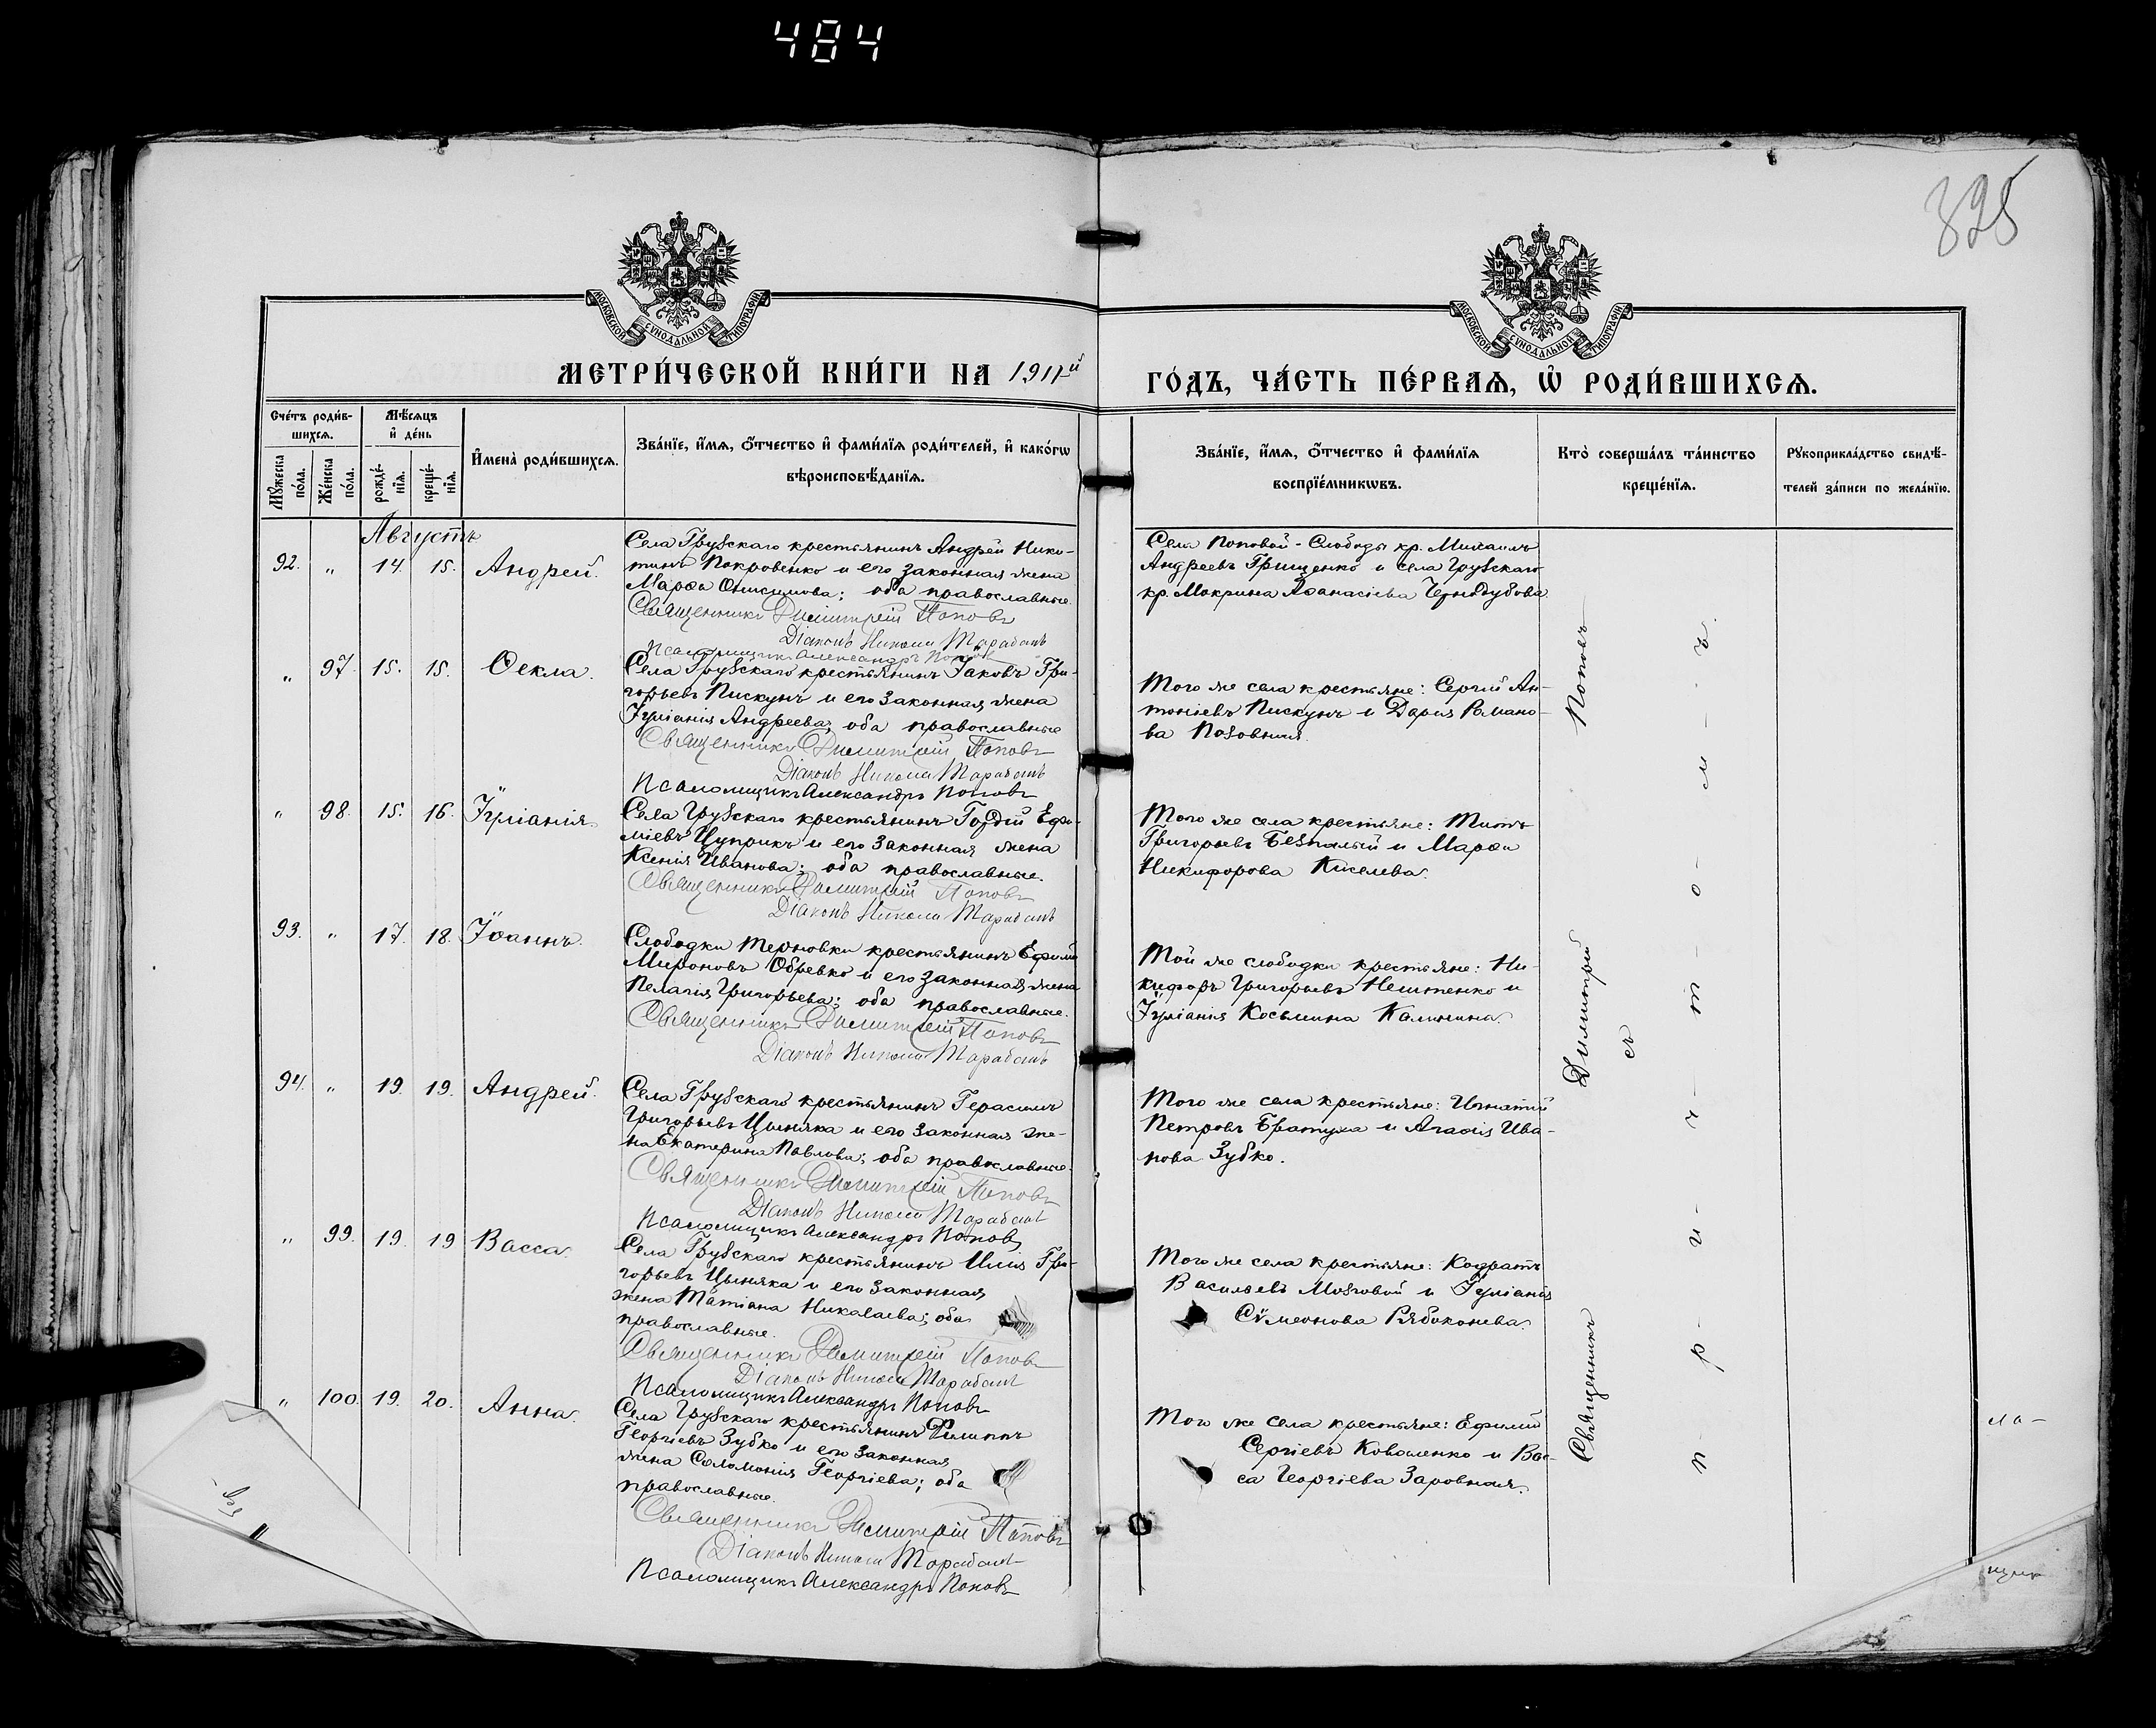 484
325
МОСКОВСКОЙ СѴНОДАЛЬНОЙ ТИПОГРАФІИ
МОСКОВСКОЙ СѴНОДАЛЬНОЙ ТИПОГРАФІИ
МЕТРИ́ЧЕСКОЙ КНИ́ГИ НА 1911й ГО́ДЪ, ЧА́СТЬ ПЕ́РВАѦ, Ѡ҆ РОДИ́ВШИХСѦ.
Сче́тъ роди́в-
шихсѧ.
Мѣ́сѧцъ
и҆ де́нь
Мꙋ́жеска по́ла.
Же́нска по́ла.
рожде́-
нїѧ.
креще́-
нїѧ.
И҆мена̀ роди́вшихсѧ.
Зва́нїе, и҆́мѧ, ѻ҆́тчество и҆ фами́лїѧ роди́телей, и҆ како́гѡ
вѣроисповѣ́данїѧ.
Зва́нїе, и҆́мѧ, ѻ҆́тчество и҆ фами́лїѧ
воспрїе́мникѡвъ.
Кто̀ соверша́лъ та́инство
креще́нїѧ.
Рꙋкоприкла́дство свидѣ́-
телей за́писи по жела́нїю.
Августъ
92. „ 14. 15. Андрей.
Села Грузскаго крестьянинъ Андрей Ники-
тинъ Покровенко и его законная жена
Марѳа Онисимова; оба православные.
Священникъ Димитрій Поповъ
Діаконъ Николай Марабанъ
Псаломщикъ Александръ Поповъ
Села Поповой-Слободы кр. Михаилъ
Андреевъ Грищенко и села Грузскаго
кр. Мокрина Аѳанасіева Чернодубова.
„ 97. 15. 15. Ѳекла.
Села Грузскаго крестьянинъ Іаковъ Гри-
горьевъ Пискунъ и его законная жена
Іуліанія Андреева; оба православные
Священникъ Димитрій Поповъ
Діаконъ Николай Марабанъ
Псаломщикъ Александръ Поповъ
Того же села крестьяне: Сергій Ан-
тоніевъ Пискунъ и Дарія Романо-
ва Позовная.
„ 98. 15. 16. Іуліанія.
Села Грузскаго крестьянинъ Гордій Ефи-
міевъ Цуприкъ и его законная жена
Ксенія Иванова; оба православные.
Священникъ Димитрій Поповъ
Діаконъ Николай Марабанъ
Того же села крестьяне: Титъ
Григорьевъ Безпалый и Марѳа
Никифорова Киселева.
93. „ 17. 18. Іоаннъ.
Слободки Терновки крестьянинъ Ефимъ
Мироновъ Обревко и его законная жена
Пелагія Григорьева; оба православные.
Священникъ Димитрій Поповъ
Діаконъ Николай Марабанъ
Той же слободки крестьяне: Ни-
кифоръ Григорьевъ и
Іуліанія Косьмина Калинина.
94. „ 19. 19. Андрей.
Села Грузскаго крестьянинъ Герасимъ
Григорьевъ Цыняка и его законная же-
на Екатерина Павлова; оба православные.
Священникъ Димитрій Поповъ
Діаконъ Николай Марабанъ
Псаломщикъ Александръ Поповъ
Того же села крестьяне: Игнатій
Петровъ Братуха и Агаѳія Ива-
нова Зубко.
„ 99. 19. 19 Васса.
Села Грузскаго крестьянинъ Илія Гри-
горьевъ Цыняка и его законная
жена Татіана Николаева; оба
православные.
Священникъ Димитрій Поповъ
Діаконъ Николай Марабанъ
Псаломщикъ Александръ Поповъ
Того же села крестьяне: Кодратъ
Васильевъ Мозговой и Іуліанія
Сѵмеонова Рябоконева.
„ 100. 19. 20. Анна.
Села Грузскаго крестьянинъ Филиппъ
Георгіевъ Зубко и его законная
жена Соломонія Георгіева; оба
православные.
Священникъ Димитрій Поповъ
Діаконъ Николай Марабанъ
Псаломщикъ Александръ Поповъ
Того же села крестьяне: Ефимій
Сергіевъ Коваленко и Вас-
са Георгіева Заровная.
Священникъ Димитрій Поповъ
съ
п-р-и-ч-т-о-м-ъ.
ло-
щик